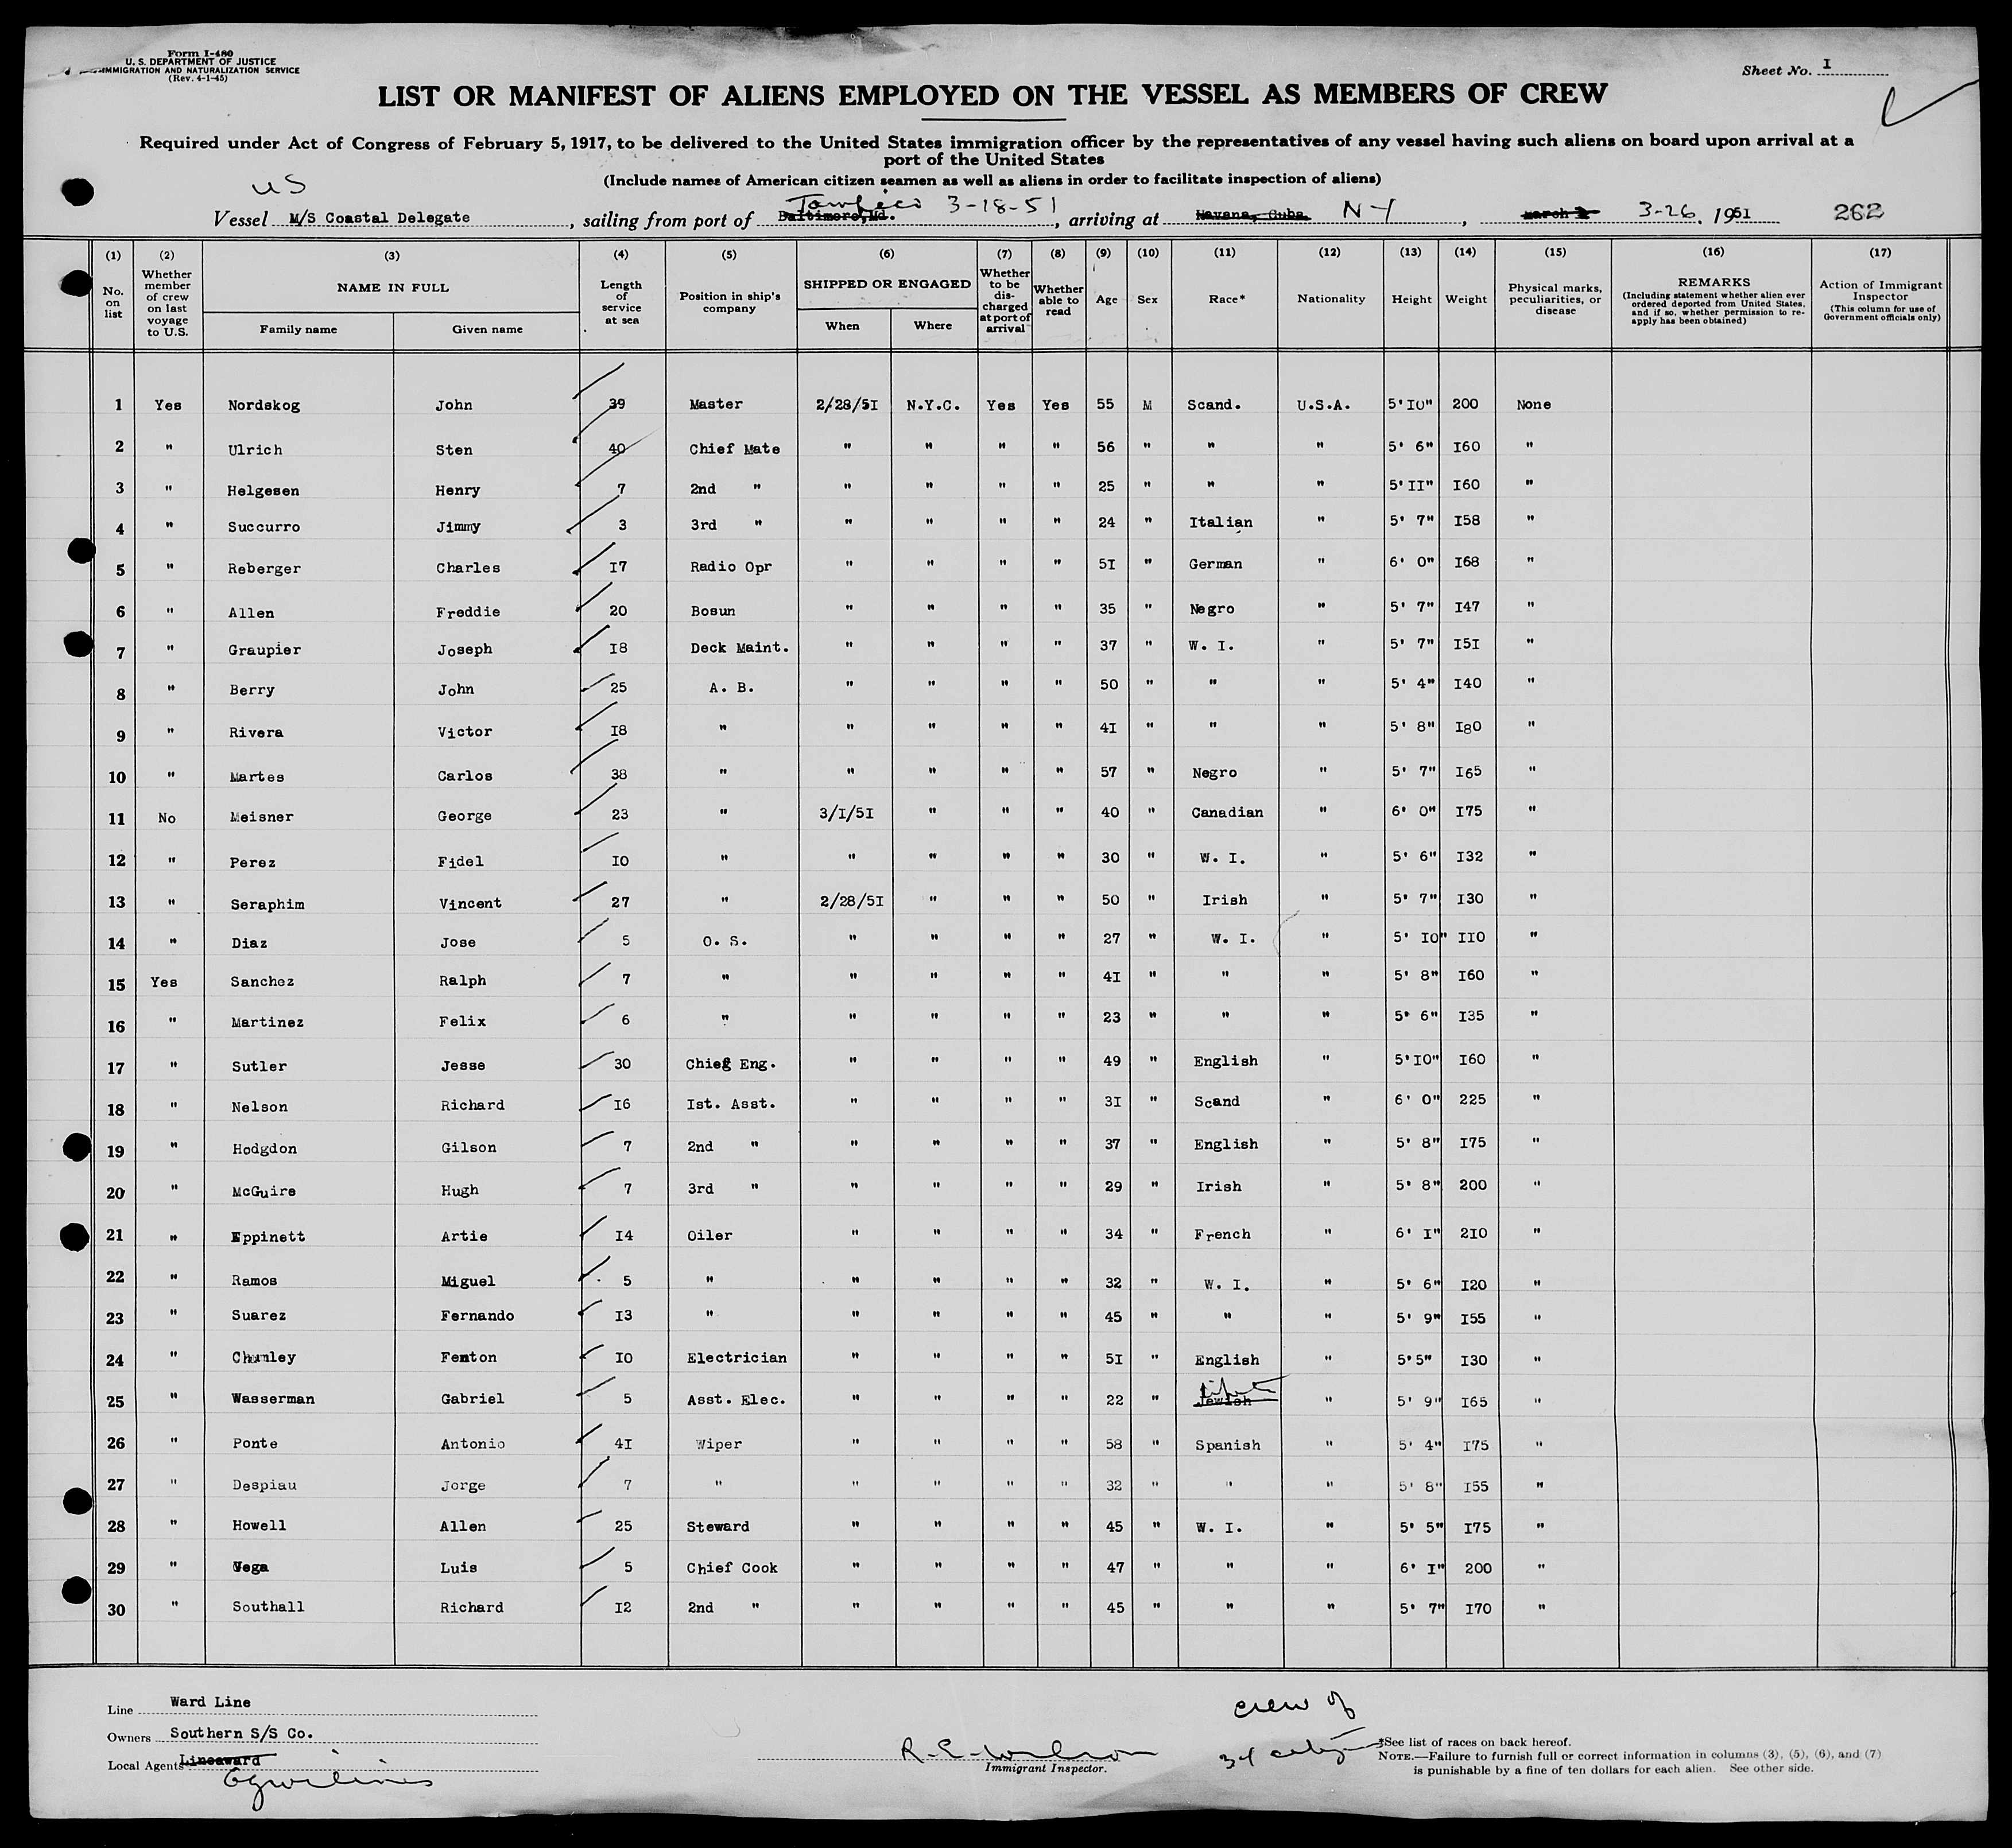 Form I-480
U. S. DEPARTMENT OF JUSTICE
IMMIGRATION AND NATURALIZATION SERVICE
(Rev. 4-1-45)
Sheet No. I
LIST OR MANIFEST OF ALIENS EMPLOYED ON THE VESSEL AS MEMBERS OF CREW
Required under Act of Congress of February 5, 1917, to be delivered to the United States immigration officer by the representatives of any vessel having such aliens on board upon arrival at a
port of the United States
(Include names of American citizen seamen as well as aliens in order to facilitate inspection of aliens)
US
Tampico 3-18-51
Vessel M/S Coastal Delegate, sailing from port of Baltimore, Md., arriving at Havana, Cuba N-Y, March 3-26, 1951 262
(1) (2) (3) (4) (5) (6) (7) (8) (9) (10) (11) (12) (13) (14) (15) (16) (17)
No. on list Whether member of crew on last voyage to U.S. NAME IN FULL Family name Given name Length of service at sea Position in ship's company SHIPPED OR ENGAGED When Where Whether to be discharged at port of arrival Whether able to read Age Sex Race* Nationality Height Weight Physical marks, peculiarities, or disease REMARKS (Including statement whether alien ever ordered deported from United States, and if so, whether permission to reapply has been obtained) Action of Immigrant Inspector (This column for use of Government officials only)
1 Yes Nordskog John 39 Master 2/28/5I N.Y.C. Yes Yes 55 M Scand. U.S.A. 5'IO" 200 None
2 " Ulrich Sten 40 Chief Mate " " " " 56 " " " 5' 6" I60 "
3 " Helgesen Henry 7 2nd " " " " " 25 " " " 5'II" I60 "
4 " Succurro Jimmy 3 3rd " " " " " 24 " Italian " 5' 7" I58 "
5 " Reberger Charles I7 Radio Opr " " " " 5I " German " 6' 0" I68 "
6 " Allen Freddie 20 Bosun " " " " 35 " Negro " 5' 7" I47 "
7 " Graupier Joseph I8 Deck Maint. " " " " 37 " W. I. " 5' 7" I5I "
8 " Berry John 25 A. B. " " " " 50 " " " 5' 4" I40 "
9 " Rivera Victor I8 " " " " " 4I " " " 5' 8" I80 "
10 " Martes Carlos 38 " " " " " 57 " Negro " 5' 7" I65 "
11 No Meisner George 23 " 3/I/5I " " " 40 " Canadian " 6' 0" I75 "
12 " Perez Fidel IO " " " " " 30 " W. I. " 5' 6" I32 "
13 " Seraphim Vincent 27 " 2/28/5I " " " 50 " Irish " 5' 7" I30 "
14 " Diaz Jose 5 O. S. " " " " 27 " W. I. " 5' IO" IIO "
15 Yes Sanchez Ralph 7 " " " " " 4I " " " 5' 8" I60 "
16 " Martinez Felix 6 " " " " " 23 " " " 5' 6" I35 "
17 " Sutler Jesse 30 Chief Eng. " " " " 49 " English " 5'IO" I60 "
18 " Nelson Richard I6 Ist. Asst. " " " " 3I " Scand " 6' 0" 225 "
19 " Hodgdon Gilson 7 2nd " " " " " 37 " English " 5' 8" I75 "
20 " McGuire Hugh 7 3rd " " " " " 29 " Irish " 5' 8" 200 "
21 " Eppinett Artie I4 Oiler " " " " 34 " French " 6' I" 2I0 "
22 " Ramos Miguel 5 " " " " " 32 " W. I. " 5' 6" I20 "
23 " Suarez Fernando I3 " " " " " 45 " " " 5' 9" I55 "
24 " Chumley Fenton IO Electrician " " " " 5I " English " 5'5" I30 "
25 " Wasserman Gabriel 5 Asst. Elec. " " " " 22 " Jewish " 5' 9" I65 "
26 " Ponte Antonio 4I Wiper " " " " 58 " Spanish " 5' 4" I75 "
27 " Despiau Jorge 7 " " " " " 32 " " " 5' 8" I55 "
28 " Howell Allen 25 Steward " " " " 45 " W. I. " 5' 5" I75 "
29 " Vega Luis 5 Chief Cook " " " " 47 " " " 6' I" 200 "
30 " Southall Richard I2 2nd " " " " " 45 " " " 5' 7" I70 "
Line Ward Line
Owners Southern S/S Co.
Local Agents Lineaward
R. E. Wilson
Immigrant Inspector.
crew of
34
*See list of races on back hereof.
NOTE.—Failure to furnish full or correct information in columns (3), (5), (6), and (7)
is punishable by a fine of ten dollars for each alien. See other side.